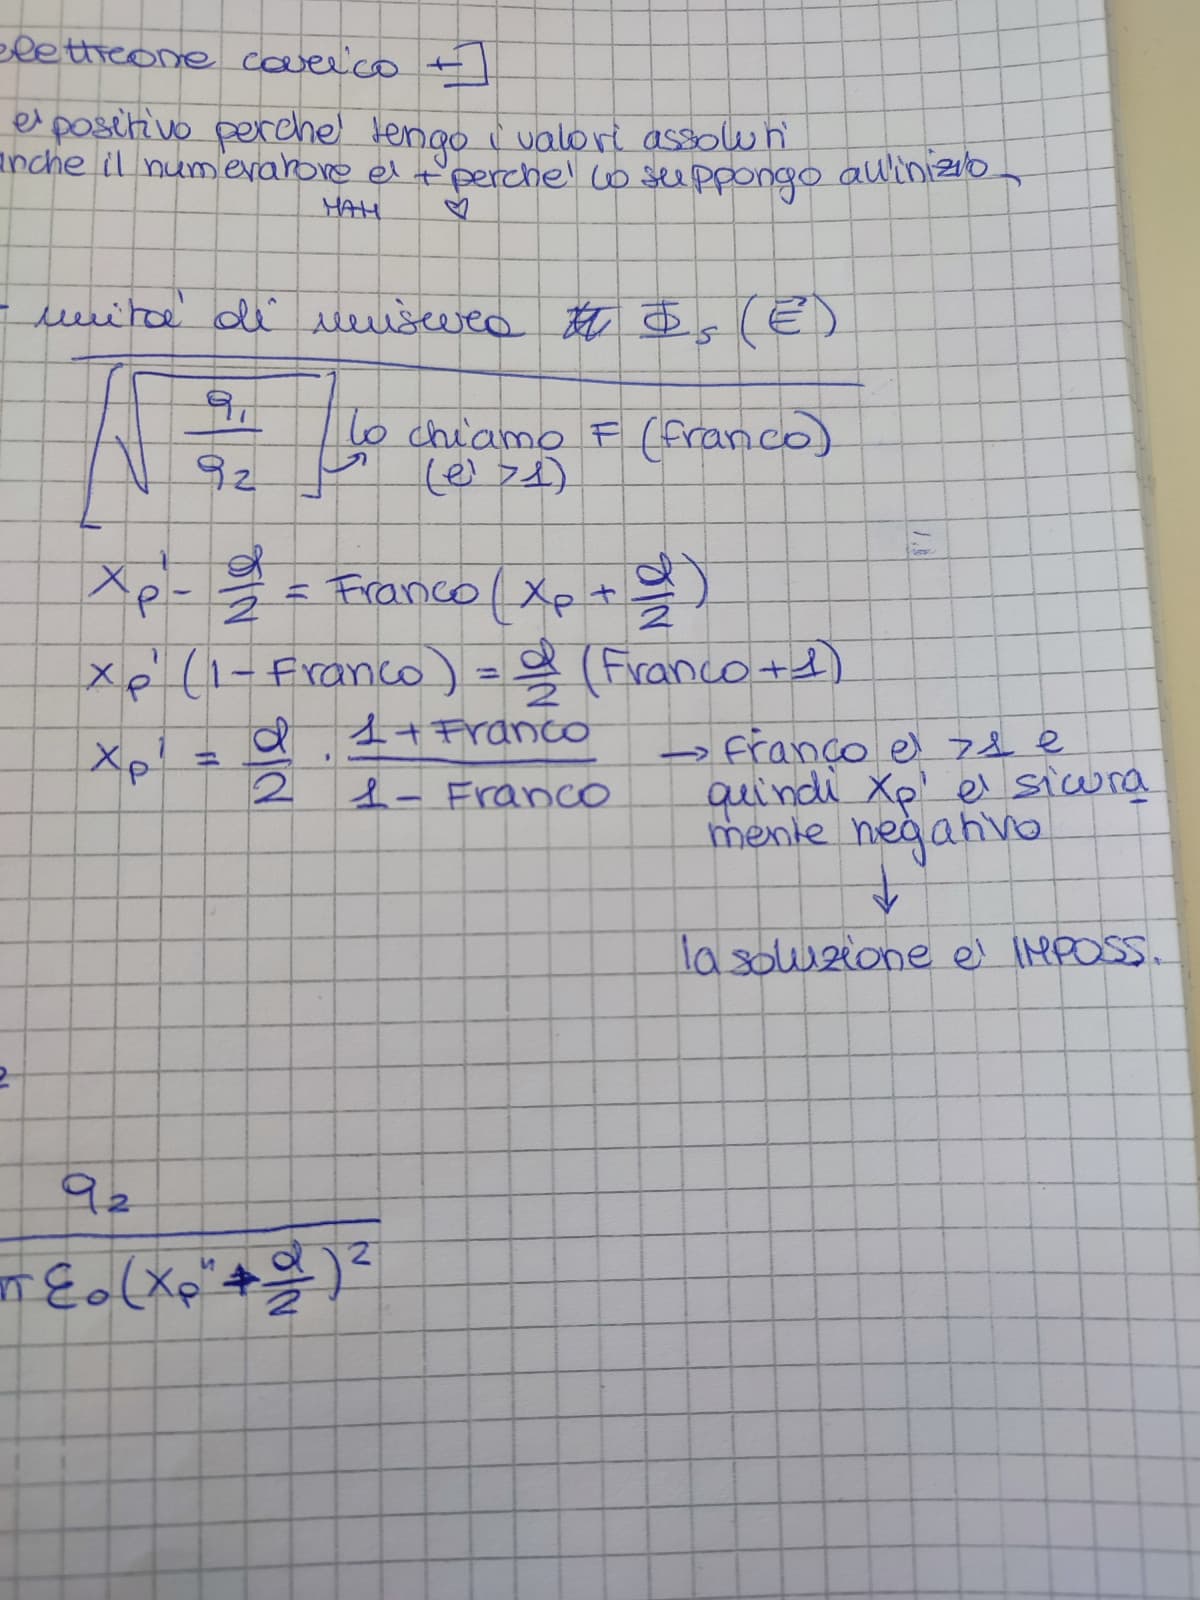 elettrone carico +]
e' positivo perche' tengo i valori assoluti
anche il numeratore e' + perche' lo suppongo all'inizio
MAH ♡
- unità di misura Φs (E⃗)
[√(q1/q2)] lo chiamo F (Franco)
(e' >1)
xp' - d/2 = Franco (xp + d/2)
xp' (1 - Franco) = d/2 (Franco + 1)
xp' = d/2 · (1 + Franco)/(1 - Franco) → Franco e' >1 e
quindi xp' e' sicura
mente negativo
↓
la soluzione e' IMPOSS.
2
q2
π ε0 (xp" + d/2)²